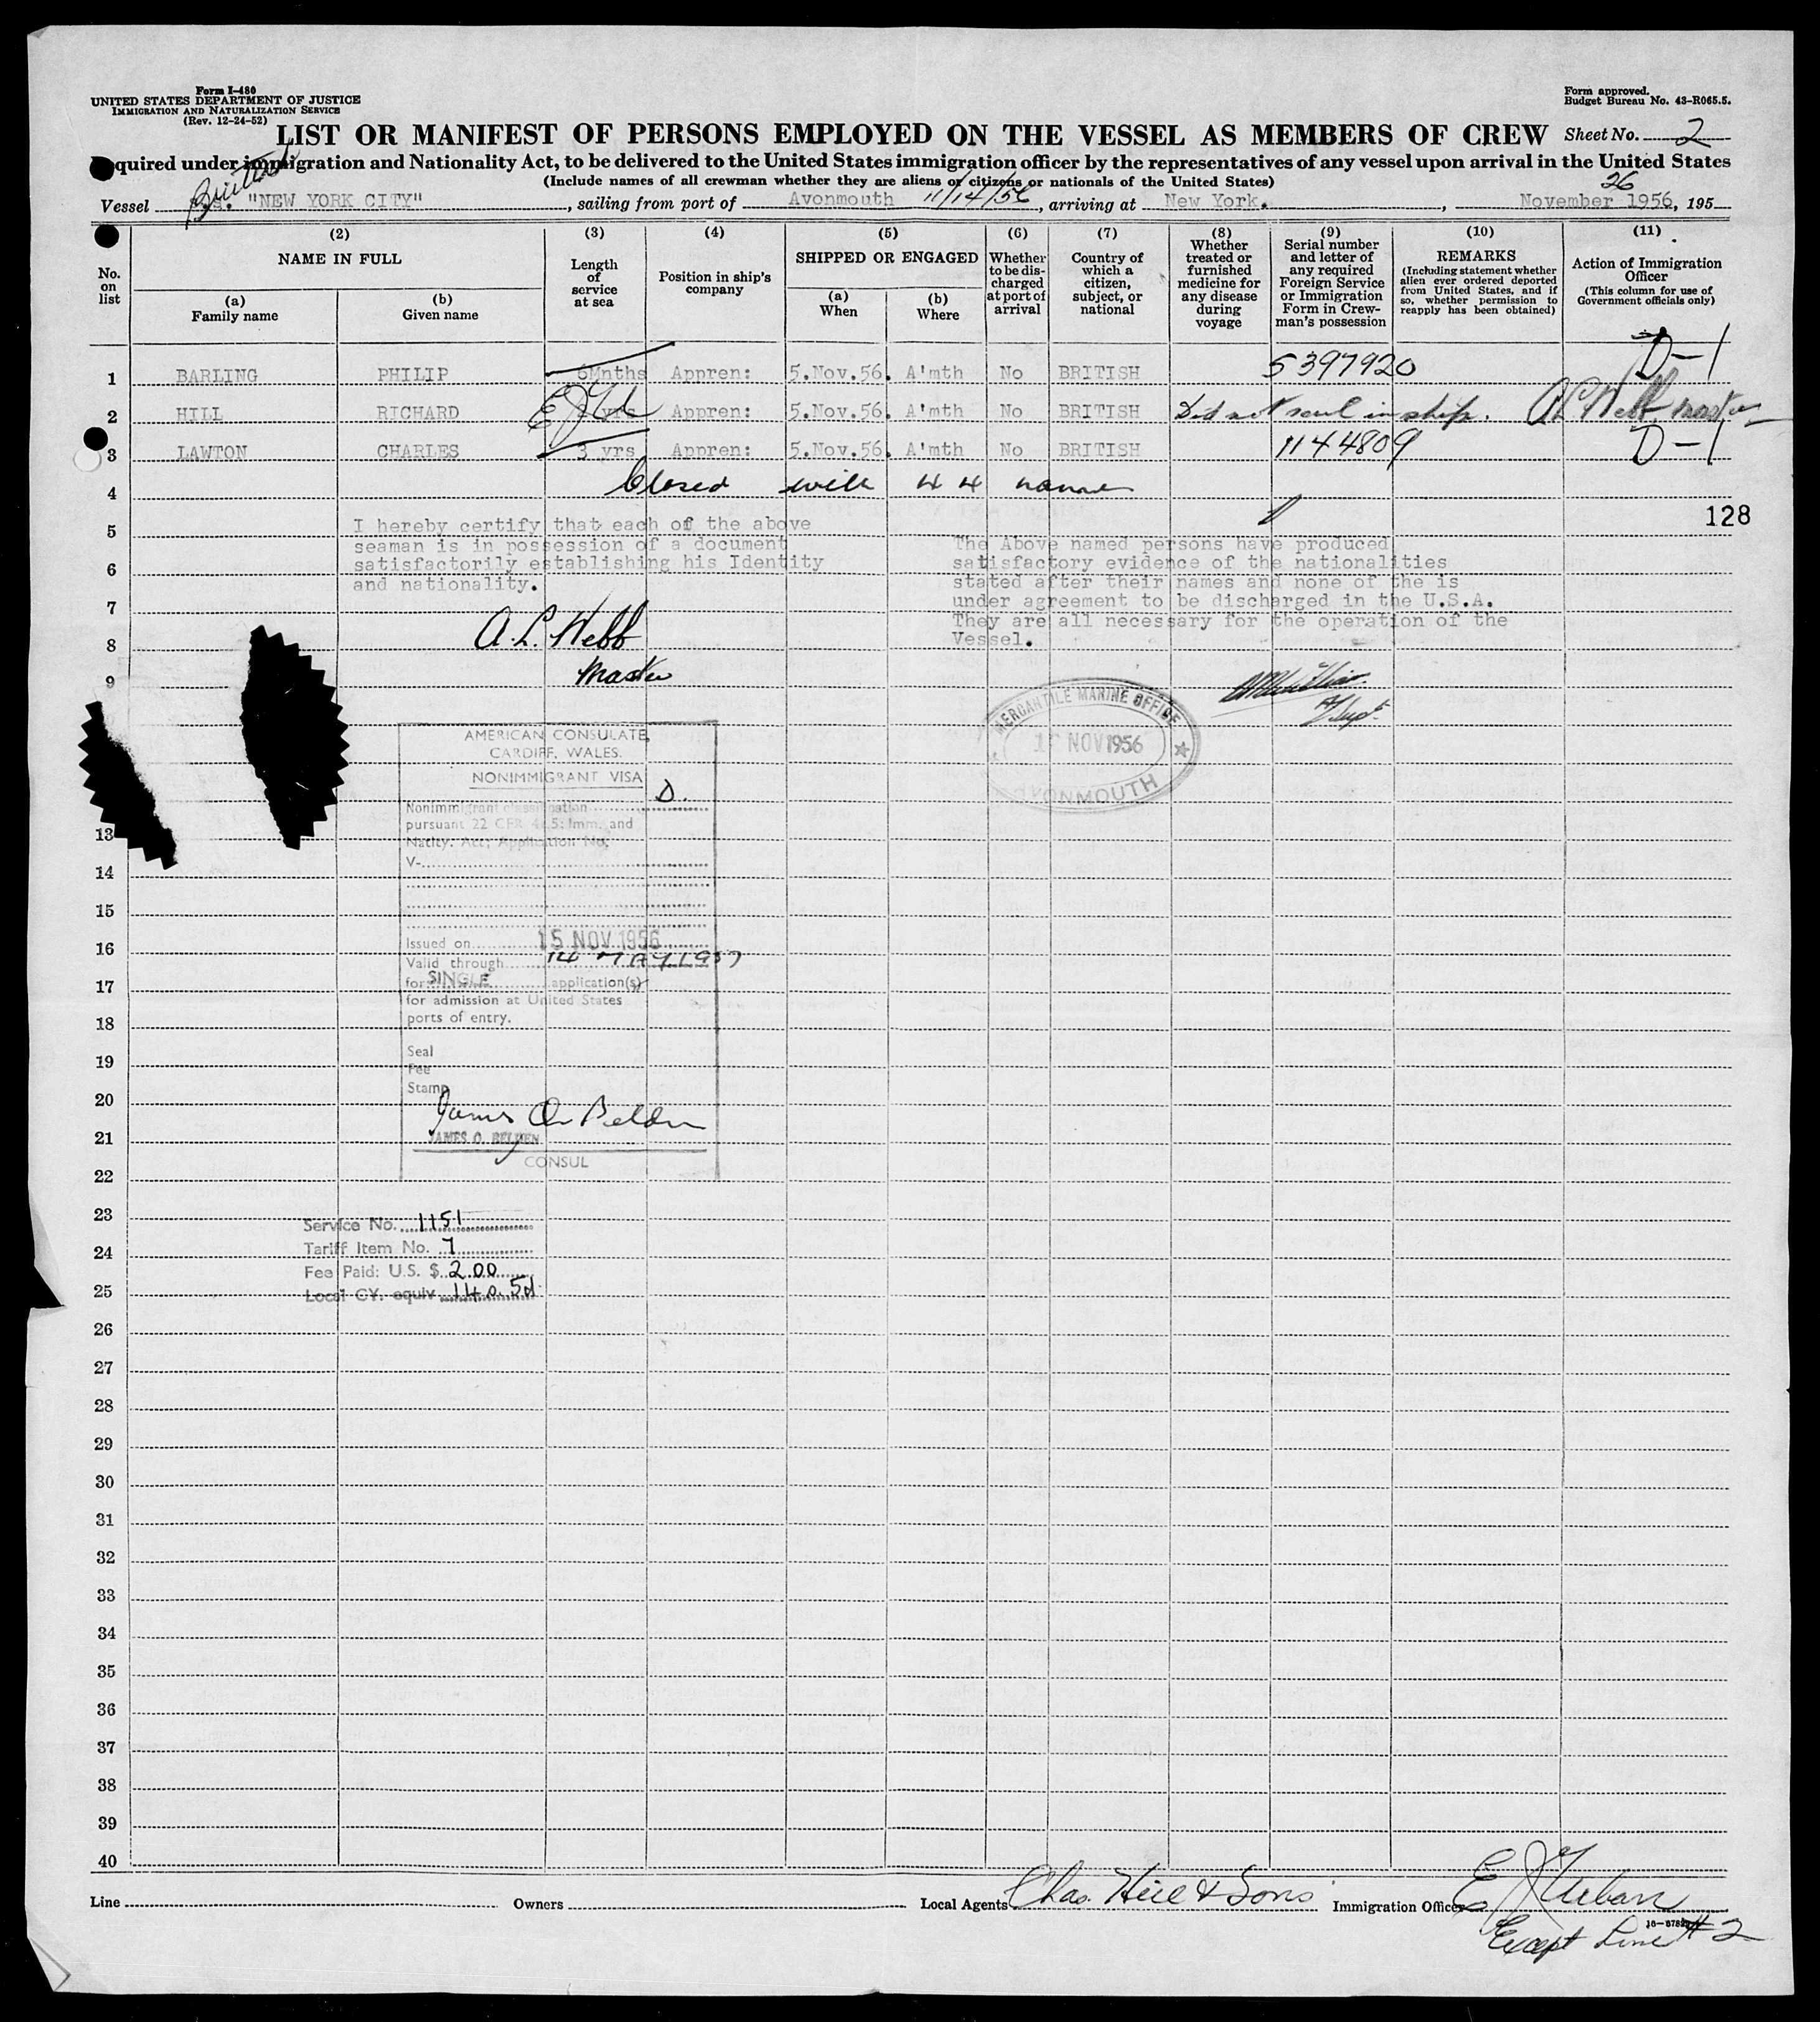 Form I-480
UNITED STATES DEPARTMENT OF JUSTICE
IMMIGRATION AND NATURALIZATION SERVICE
(Rev. 12-24-52)
Form approved.
Budget Bureau No. 43-R065.5.
LIST OR MANIFEST OF PERSONS EMPLOYED ON THE VESSEL AS MEMBERS OF CREW Sheet No. 2
quired under immigration and Nationality Act, to be delivered to the United States immigration officer by the representatives of any vessel upon arrival in the United States
(Include names of all crewman whether they are aliens or citizens or nationals of the United States)
British
Vessel s.s. "NEW YORK CITY", sailing from port of Avonmouth 11/14/56, arriving at New York., November 26 1956, 195
No. on list
(2) NAME IN FULL
(a) Family name
(b) Given name
(3) Length of service at sea
(4) Position in ship's company
(5) SHIPPED OR ENGAGED
(a) When
(b) Where
(6) Whether to be discharged at port of arrival
(7) Country of which a citizen, subject, or national
(8) Whether treated or furnished medicine for any disease during voyage
(9) Serial number and letter of any required Foreign Service or Immigration Form in Crewman's possession
(10) REMARKS (Including statement whether alien ever ordered deported from United States, and if so, whether permission to reapply has been obtained)
(11) Action of Immigration Officer (This column for use of Government officials only)
1 BARLING PHILIP 6Mnths Appren: 5.Nov.56. A'mth No BRITISH 5397920 D-1
2 HILL RICHARD yrs Appren: 5.Nov.56. A'mth No BRITISH Did not sail in ship. A.L. Webb master
3 LAWTON CHARLES 3 yrs Appren: 5.Nov.56. A'mth No BRITISH 1144809 D-1
4 Closed with 44 names
128
5
6
7
8
9
I hereby certify that each of the above
seaman is in possession of a document
satisfactorily establishing his Identity
and nationality.
A. L. Webb
Master
The Above named persons have produced
satisfactory evidence of the nationalities
stated after their names and none of the is
under agreement to be discharged in the U.S.A.
They are all necessary for the operation of the
Vessel.
MERCANTILE MARINE OFFICE
NOV 1956
AVONMOUTH
AMERICAN CONSULATE,
CARDIFF, WALES.
NONIMMIGRANT VISA
Nonimmigrant classification D.
pursuant 22 CFR 41.5: Imm. and
Natlty. Act; Application No.
V-
Issued on 15 NOV 1956
Valid through 14 MAY 1957
for SINGLE application(s)
for admission at United States
ports of entry.
Seal
Fee
Stamp
James O. Belden
JAMES O. BELDEN
CONSUL
13
14
15
16
17
18
19
20
21
22
23
24
25
Service No. 1151
Tariff Item No. 7
Fee Paid: U.S. $ 2.00
Local CY. equiv. 14s. 5d
26
27
28
29
30
31
32
33
34
35
36
37
38
39
40
Line Owners Local Agents Chas. Hill & Sons Immigration Officer E J Urban
Except Line #2